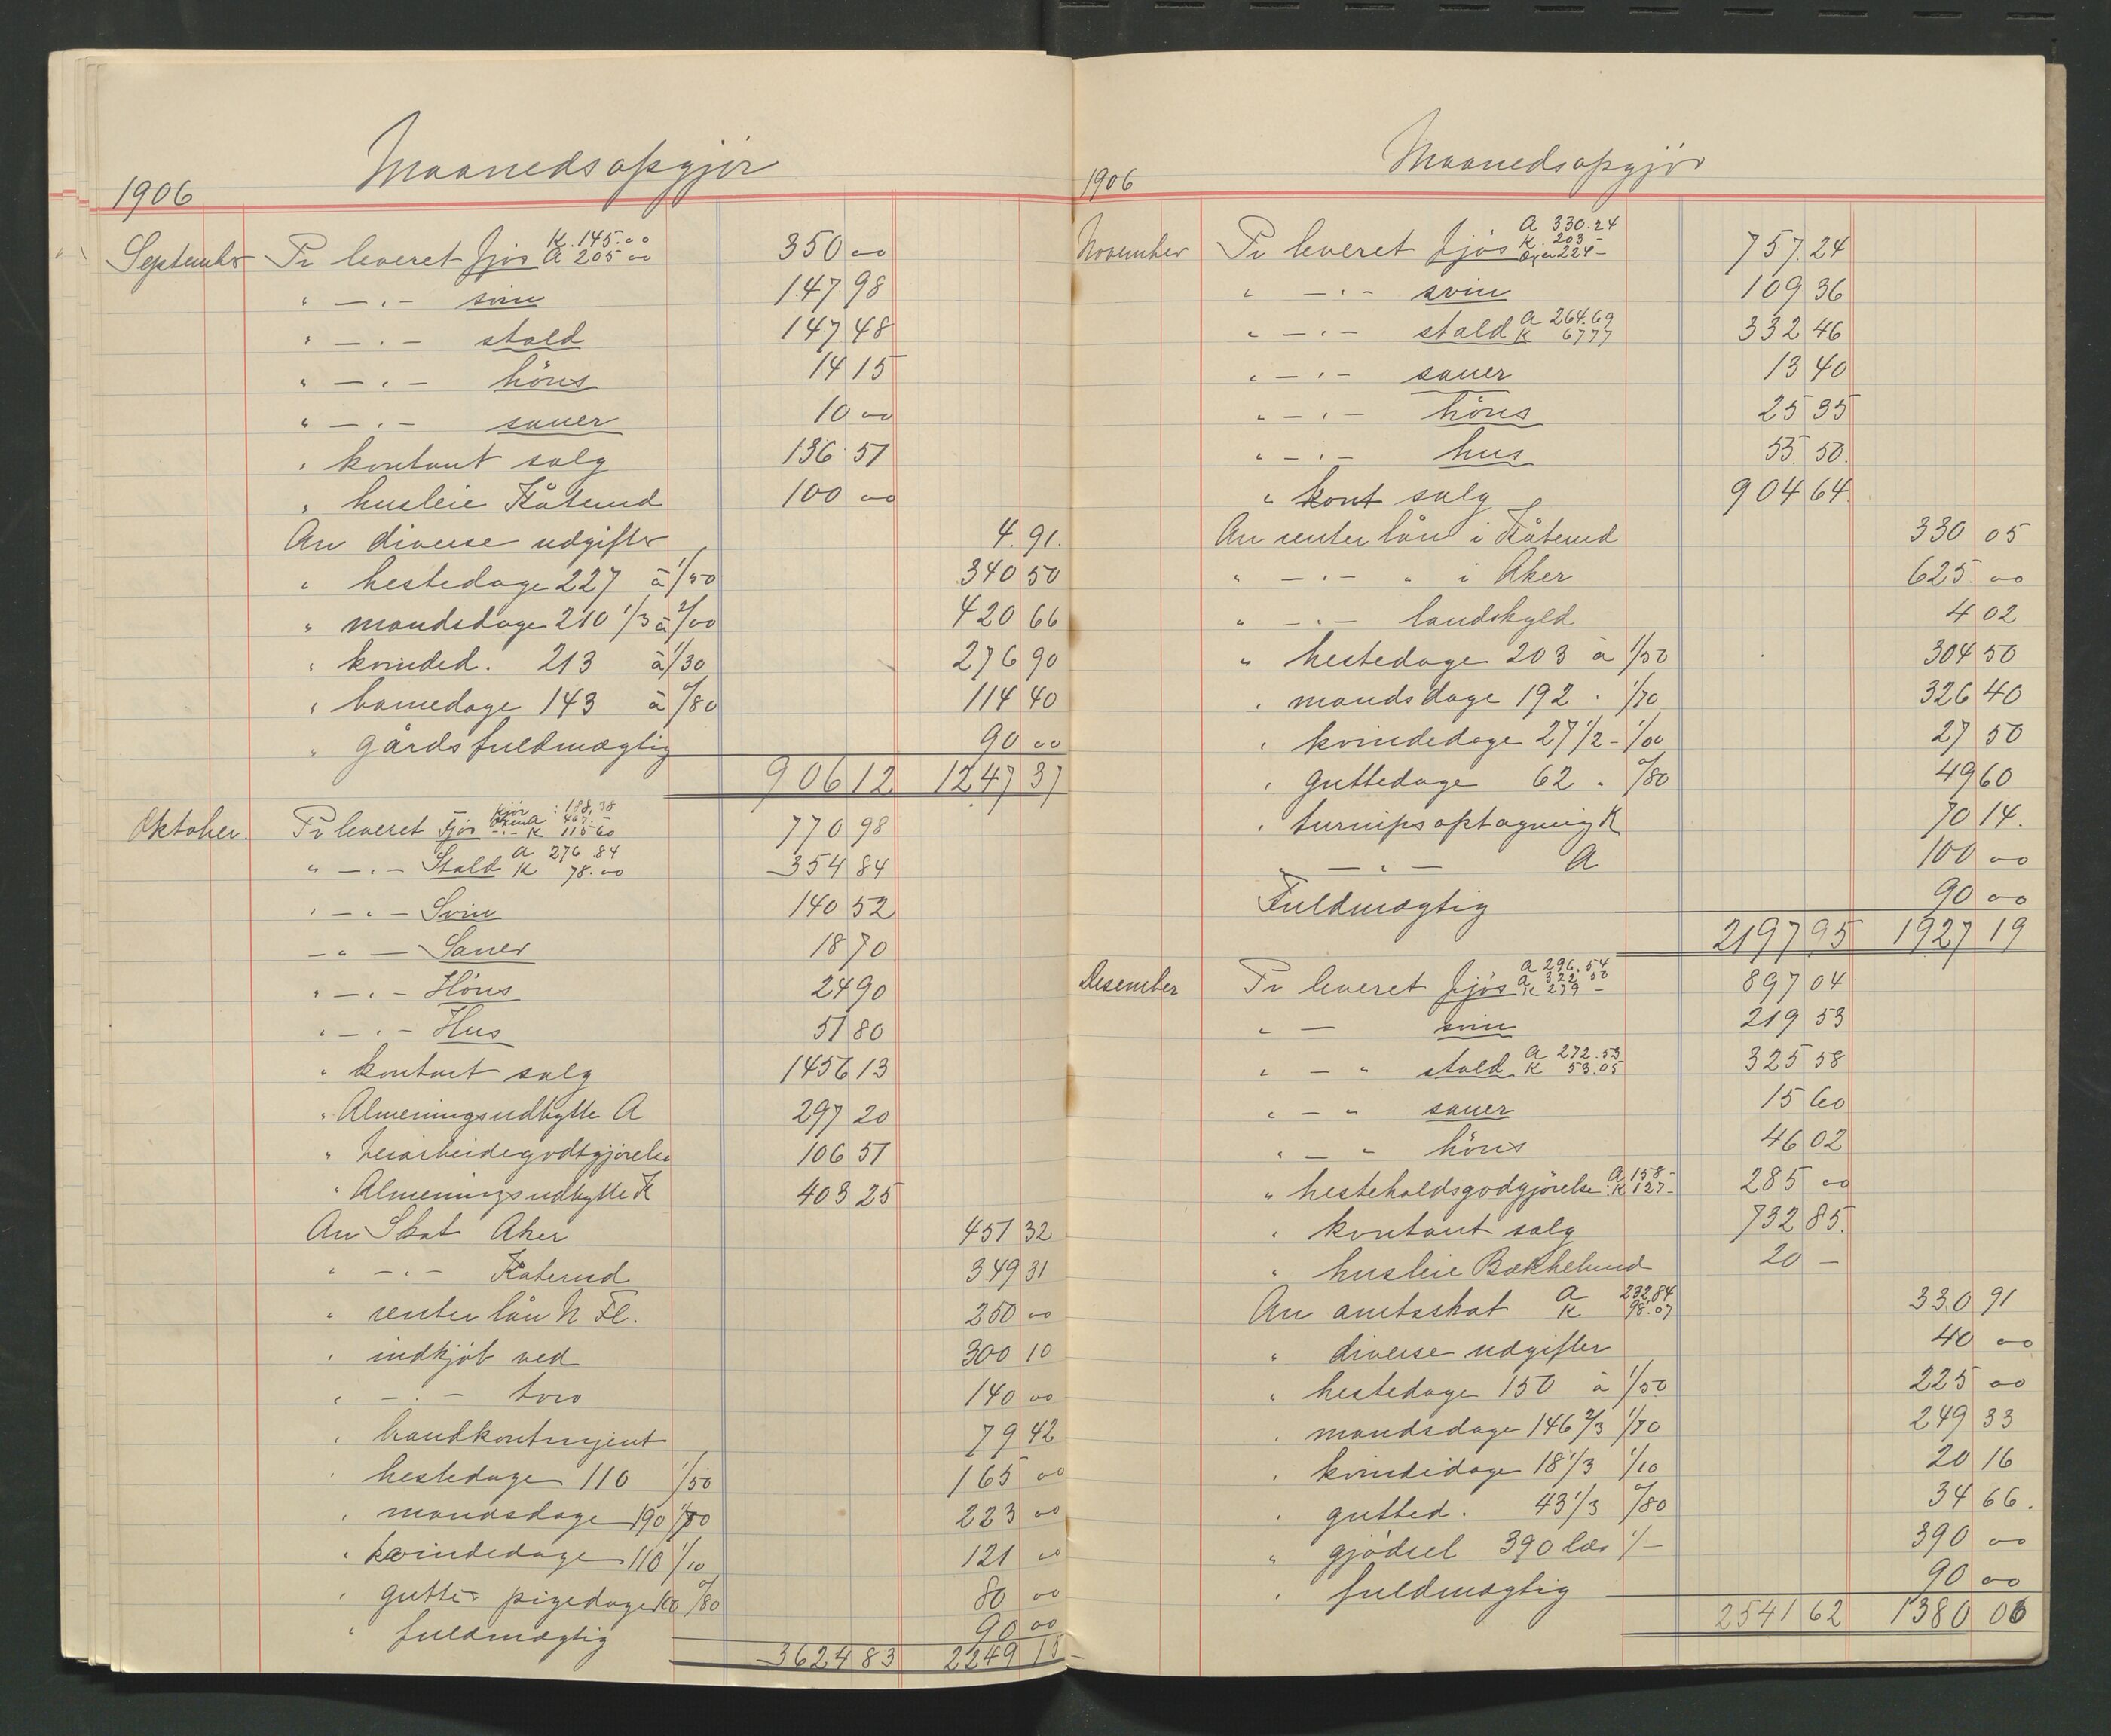 Maanedsopgjör
1906
September Pr leveret fjös K. 145.00 A 205 00 350 00
" — . — svin 147.98
" — . — stald 147 48
" — . — höns 14 15
" — . — sauer 10 00
" kontant salg 136 51
" husleie Kåterud 100 00
An diverse udgifter 4.91.
" hestedage 227 à 1/50 340 50
" mandsdage 210 1/3 à 2/00 420 66
" kvinded. 213 à 1/30 276 90
" barnedage 143 à 0/80 114 40
" gårdsfuldmægtig 90 00
906 12 1247 37
Oktober. Pr leveret Fjös kjör : 188,38 A 467. — K 115 60 770 98
" — . — Stald A 276 84 K 78.00 354 84
" — " — Svin 140 52
— " — Sauer 18 70
" — . — Höns 24 90
" — . — Hus 51 80
" kontant salg 1456 13
" Almeningsudbytte A 297 20
" veiarbeidegodtgjörelse 106 51
" Almeningsudbytte K 403 25
An Skat Aker 451 32
" — . — Katerud 349 31
" renter lån N Fl. 250 00
" indkjöb ved 300 10
" — . — torv 140 00
" brandkontingent 79 42
" hestedage 110 1/50 165 00
" mandsdage 190 223 00
" kvindedage 110 1/10 121 00
" gutte- pigedage 100 0/80 80 00
" fuldmægtig 90 00
3624 83 2249 15
Maanedsopgjör
1906
November Pr leveret fjös A 330.24 K. 203 – Oxer 224 – 757.24
" — . — svin 109 36
" — . — stald A 264.69 K 67 77 332 46
" — . — sauer 13 40
" — . — höns 25 35
" — . — hus 55. 50.
" kont salg 904 64
An renter lån i Kåterud 330 05
" — . — " i Aker 625. 00
" — . — landskyld 4 02
" hestedage 203 à 1/50 304 50
" mandsdage 192 . 1/70 326 40
" kvindedage 27 1/2 - 1/00 27 50
" guttedage 62 . 0/80 49 60
" turnipsoptagning K 70 14.
" — . — A 100 00
Fuldmægtig 90 00
2197 95 1927 19
Desember Pr leveret fjös A 296.54 A 322 50 K 279 – 897 04
" — svin 219 53
" — " stald A 272.53 K 53.05 325 58
" — " sauer 15 60
" — " höns 46 02
" hesteholdsgodgjörelse A 158 – K 127 – 285 00
" kontant salg 732 85.
" husleie Bækkelund 20 —
An amtsskat A 232,84 K 98.07 330 91
" diverse udgifter 40 00
" hestedage 150 à 1/50 225 00
" mandsdage 146 2/3 1/70 249 33
" kvindedage 18 1/3 1/10 20 16
" gutted. 43 1/3 0/80 34 66.
" gjödsel 390 læs 1/— 390 00
" fuldmægtig 90 00
2541 62 1380 06